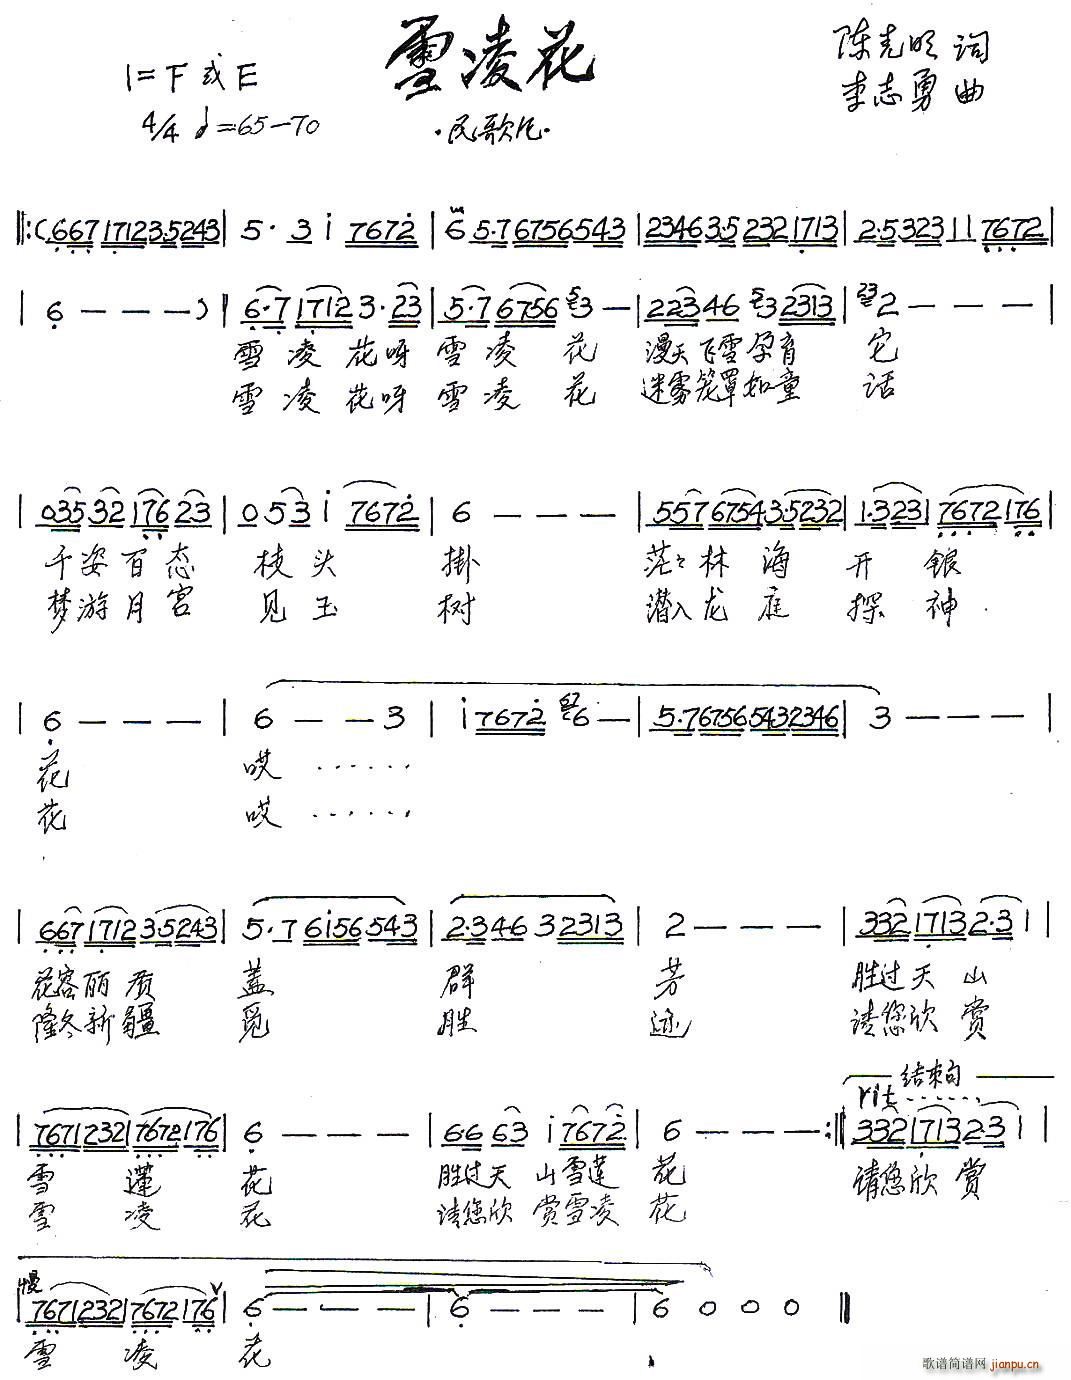 雪凌花
1=F或E
4/4 ♩=65-70
·民歌风·
陈光明 词
李志勇 曲
‖:(667 17123·5243 | 5· 3 i 7672 | 6 5·7 6756 543 | 23463·5 232 1713 | 2·5323 11 7672 |
| 6 - - - ) | 6·7 1712 3·23 | 5·7 6756 53 - | 2234 6 53 2313 | 232 - - - |
雪凌花呀 雪凌花 漫天飞雪孕育它
雪凌花呀 雪凌花 迷雾笼罩如童话
| 035 32 176 23 | 0 5 3 i 7672 | 6 - - - | 557 67543·5232 | 1·323 7672 176 |
千姿百态 枝头 掛 茫々林海 开银
梦游月宫 见玉 树 潜入龙庭 探神
| 6 - - - | 6 - - 3 | i 7672 676 - | 5·76756 5432346 | 3 - - - |
花 哎······
花 哎······
| 667 1712 3·5243 | 5·7 6i56 543 | 2·3 46 3 2313 | 2 - - - | 332 1713 2·3 1 |
花容丽质 盖 群 芳 胜过天山
隆冬新疆 觅 胜 迹 请您欣赏
结束句
rit······
| 7671232 7672 176 | 6 - - - | 66 63 i 7672 | 6 - - - :‖ 332 1713 2·3 1 |
雪莲花 胜过天山雪莲花 请您欣赏
雪凌花 请您欣赏雪凌花
慢
7671232 7672 176 | 6 - - - | 6 - - - | 6 0 0 0 ‖
雪凌花
歌谱简谱网 jianpu.cn